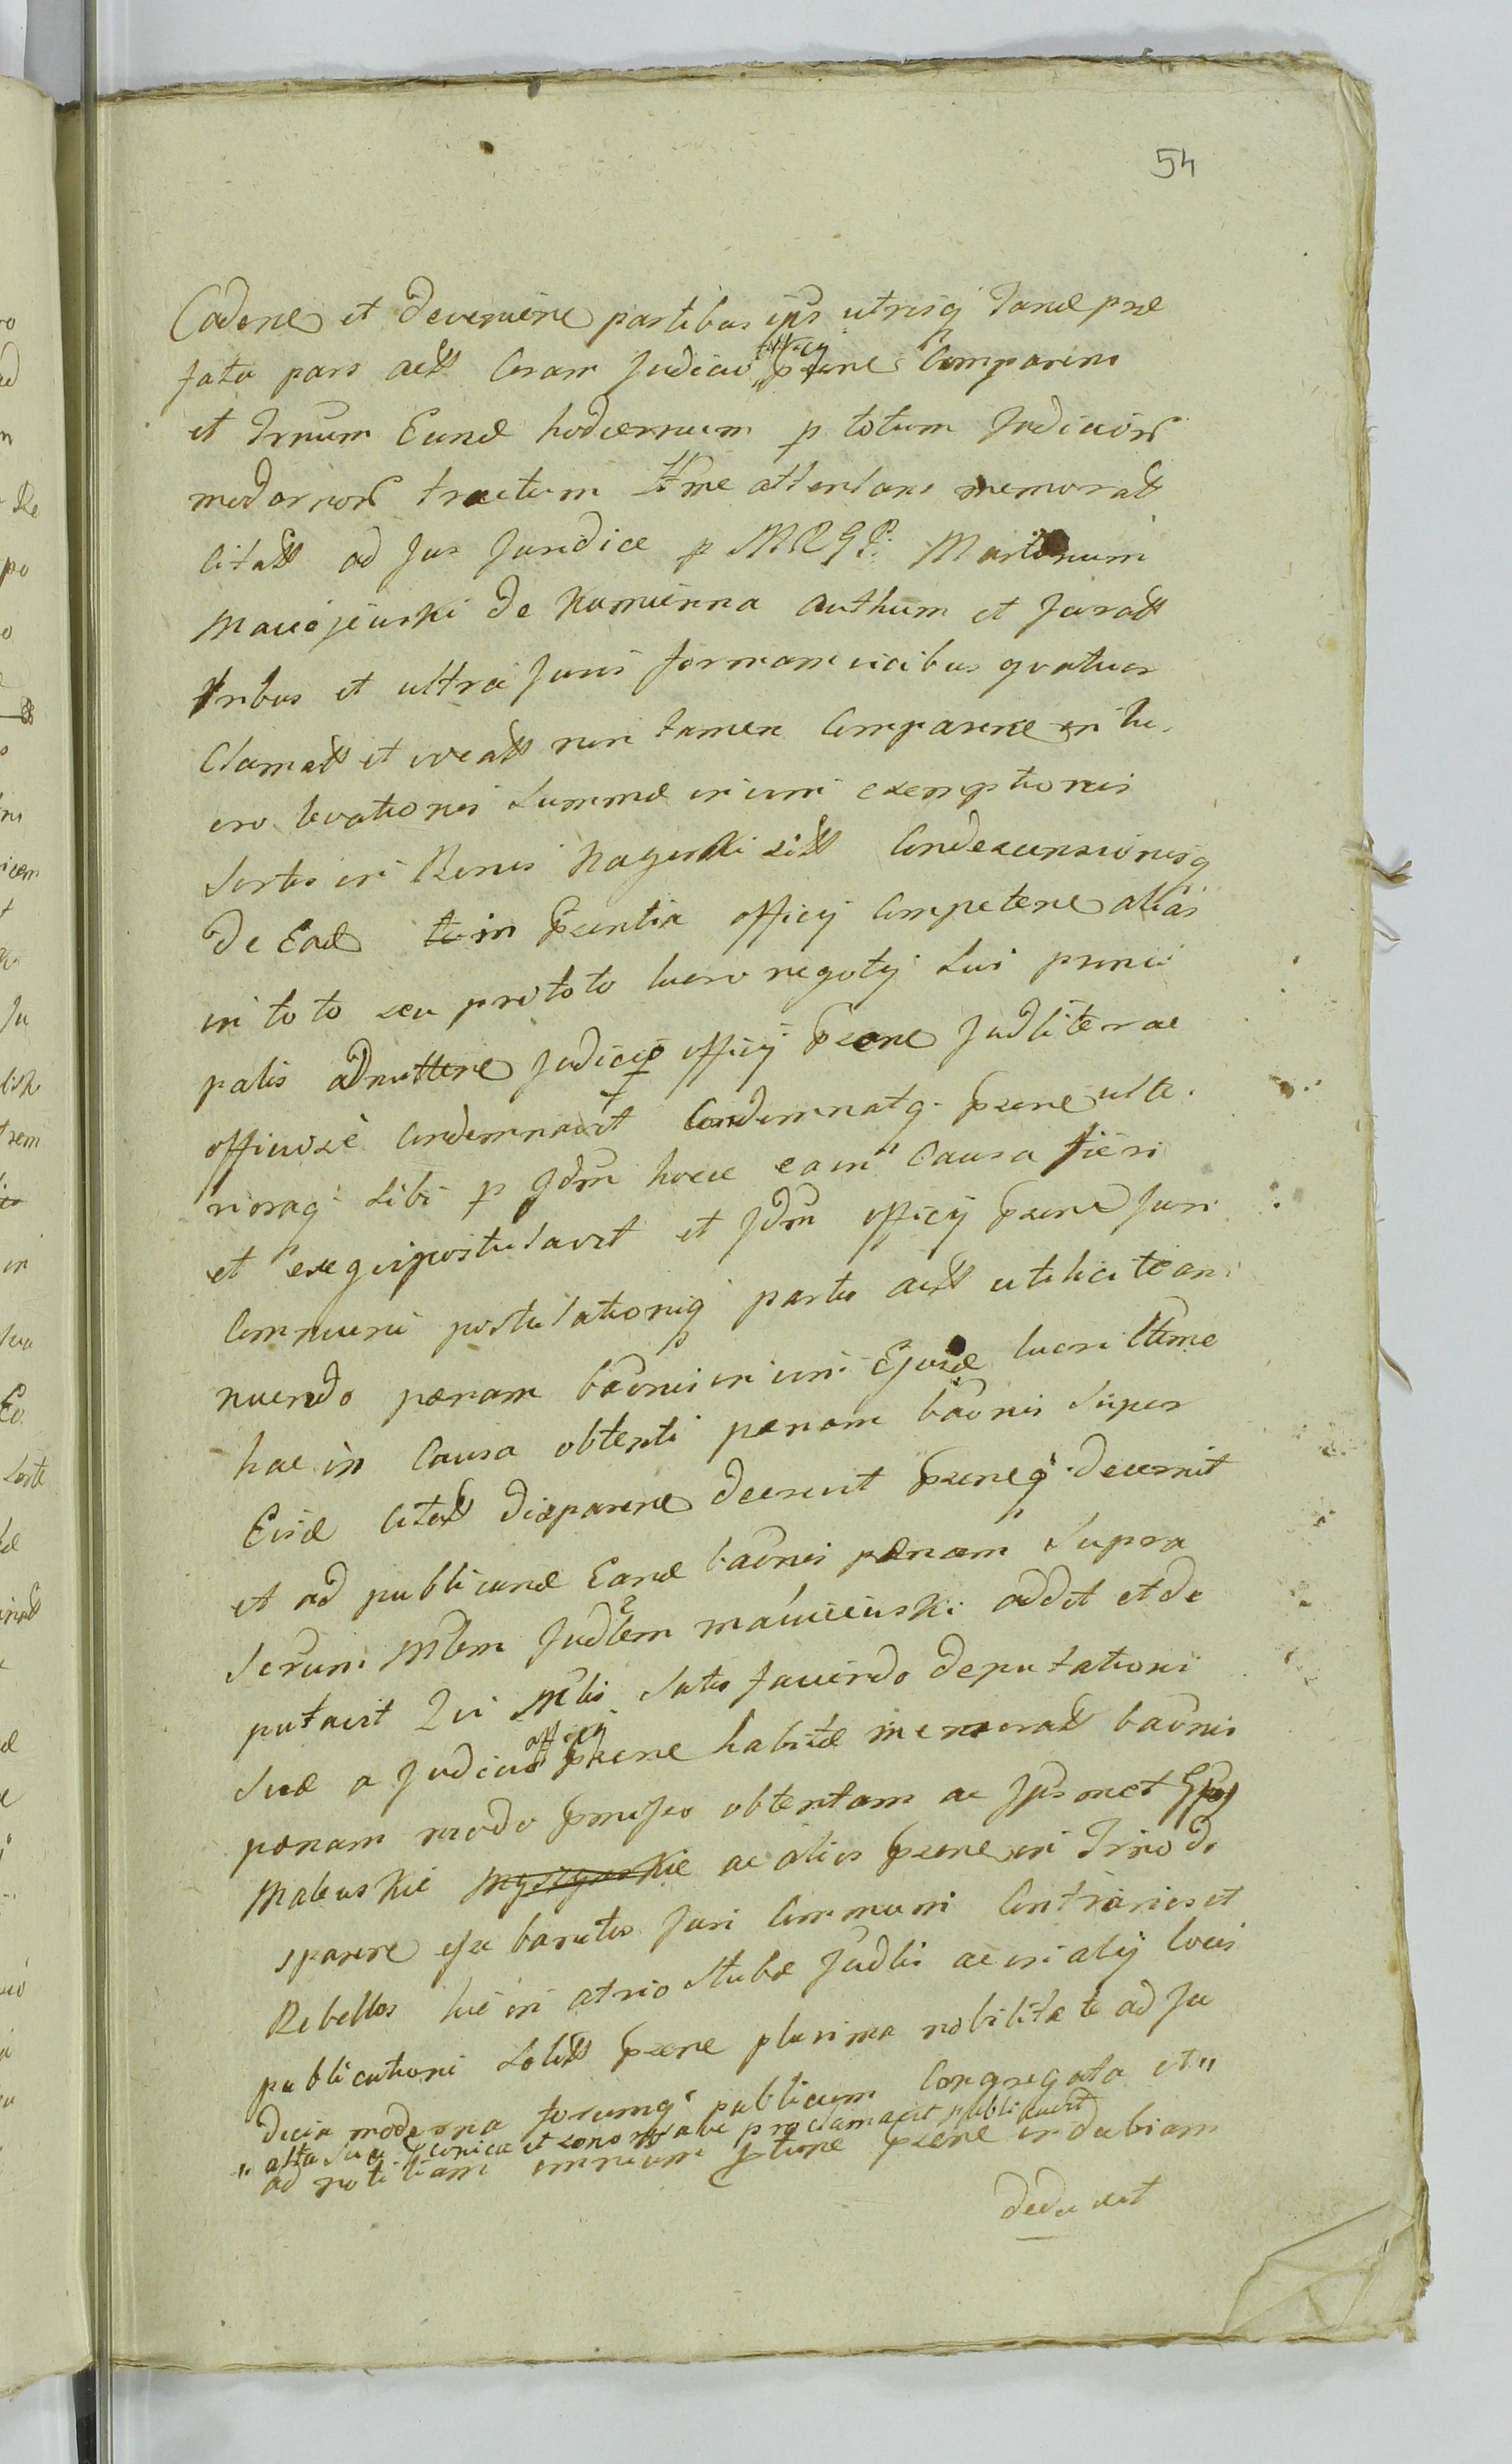 54
Cadene et devenire partibus ipis utrisq tand præ
fata pars actt Coram Judicio officij pzene Comparens
et Trnum Eund hodiernum p totum Judicior
modernor tractum ttme attentans memoratt
citatt ad Jus Juridice p MRGP. Martinum
Maciejewski de Kamienna authum et Juratt
tribus et ultra Juris formam vicibus qvatuor
Clamatt et vocatt non tamen Comparene in lu
cro levationis Summæ in vim exemptionis
Sortis in Bonis sitt Condescensionisq
de Ead in pzentia officij Competene alias
in toto seu pro toto lucro negotij sui princi
palis admittere Judicio officij pzene Judliter ac
officiose Condemnavit Condemnatq pzene ulte
rioraq sibi p Jdm hocce ea in Causa fieri
et exeqvi postulavit et Jdm officij pzene Juri
Communi postulationiq partis actt utilici te an
nuendo pænam bannis in vim Ejusd lucri ttme
hac in Causa obtenti pænam bannis super
Eisd citatt disparene decrevit pzeneq decernit
et ad publicand Eand bannis pænam supra
scrum Mlem Judlem Maciejewski addit et de
putavit Qui Mlis satis faciendo deputationi
suæ a Judicio officij pzene habitæ memoratt bannis
pænam modo pmisso obtentam ac Jpsmet Gsos
Maleuskie ac alios pzene in Trno di
sparere Juri Communi Contrarios et
Rebelles hic in atrio Stubæ Judlis ac in alij locis
publicationi solitt pzene plurima nobilitate ad Ju
dicia moderna forumq publicum Congregata et "
" alta sua et sonora voce proclamavit publicavit
ad notitiam omnium ptime pzene in dubiam
deduxit